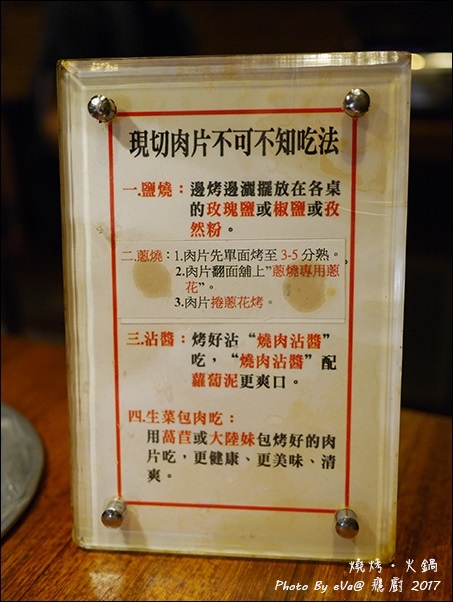 現切肉片不可不知吃法
一.鹽燒：邊烤邊灑擺放在各桌
的玫瑰鹽或椒鹽或孜
然粉。
二.蔥燒：1.肉片先單面烤至 3-5 分熟。
2.肉片翻面舖上"蔥燒專用蔥
花"。
3.肉片捲蔥花烤。
三.沾醬：烤好沾“燒肉沾醬”
吃，“燒肉沾醬”配
蘿蔔泥更爽口。
四.生菜包肉吃：
用萵苣或大陸妹包烤好的肉
片吃，更健康、更美味、清
爽。
燒烤·火鍋
Photo By eVa@ 飛廚 2017